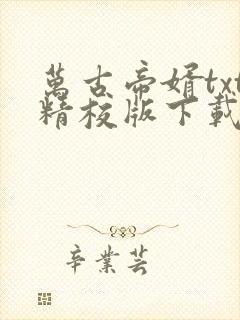 萬古帝婿txt
精校版下載
辛業芸